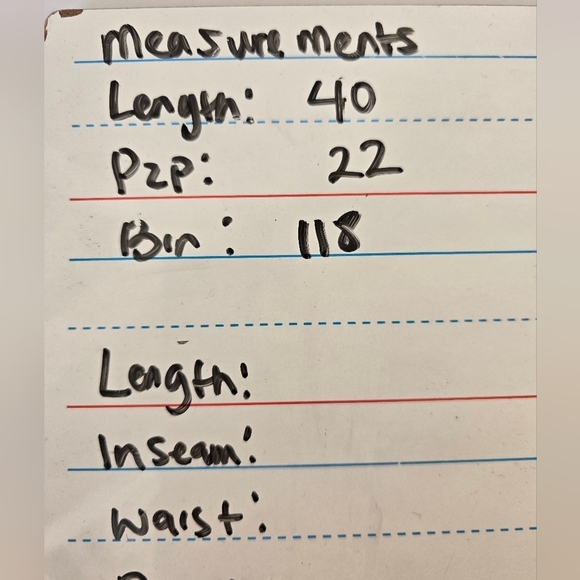 Measurements
Length: 40
P2P: 22
Bin: 118
Length:
Inseam:
Waist: